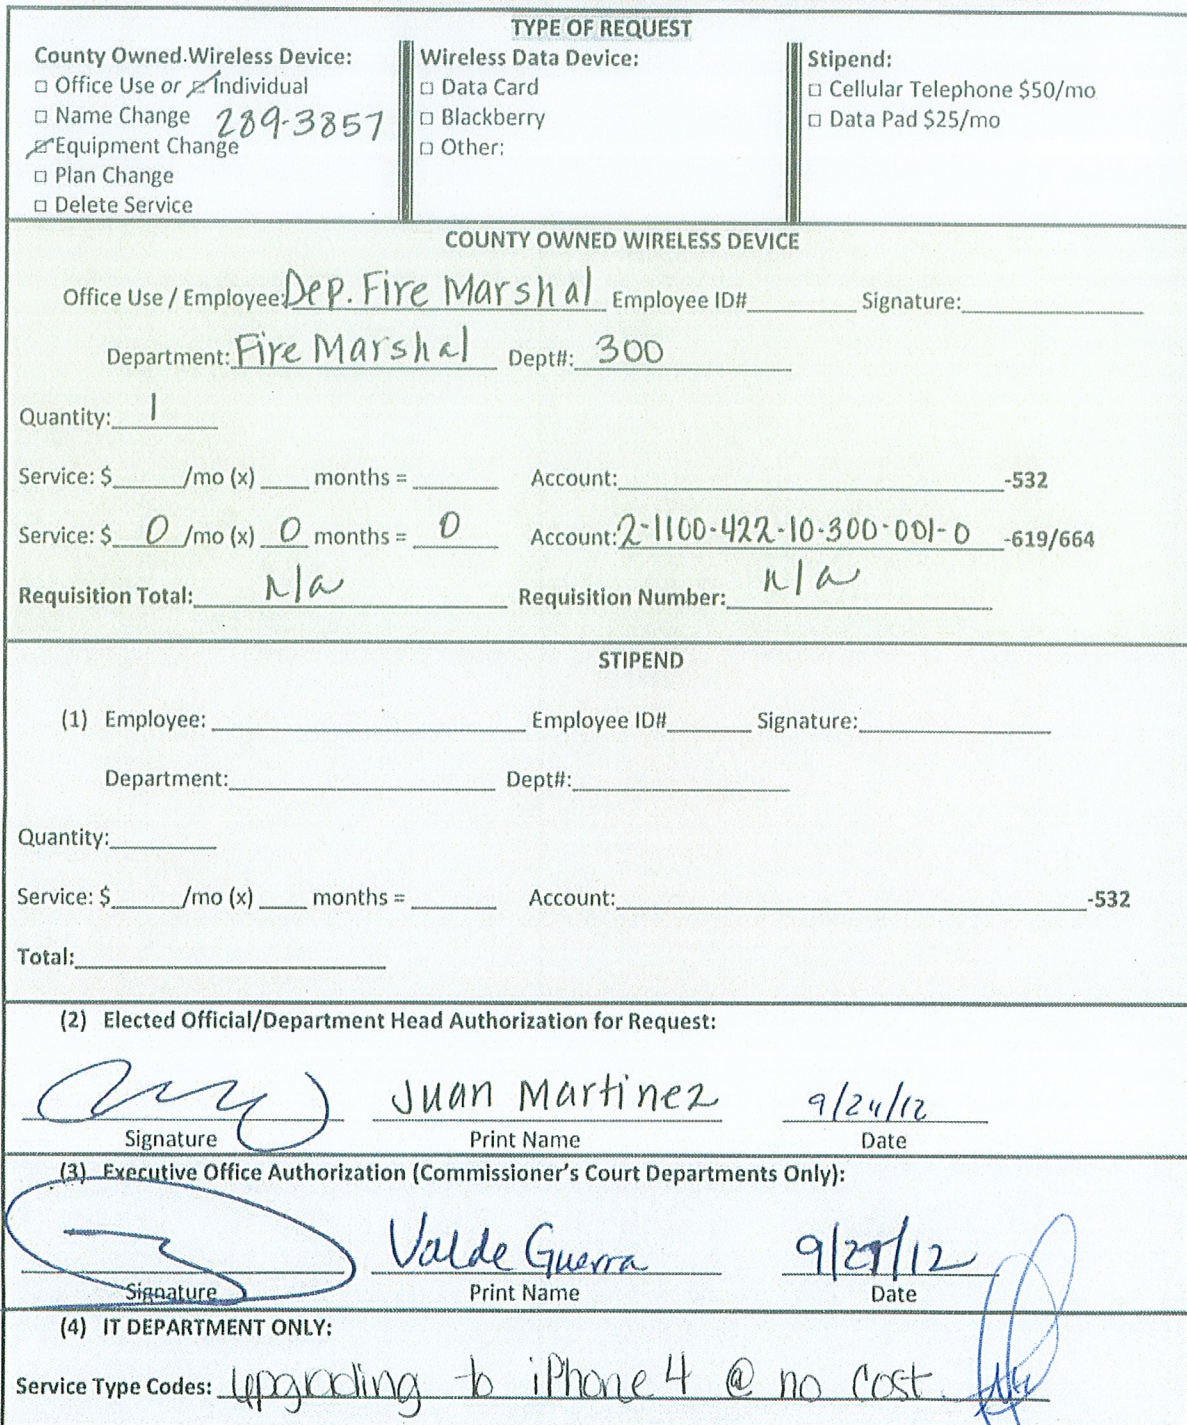 TYPE OF REQUEST
County Owned Wireless Device:
□ Office Use or ☑ Individual
□ Name Change 289-3857
☑ Equipment Change
□ Plan Change
□ Delete Service
Wireless Data Device:
□ Data Card
□ Blackberry
□ Other:
Stipend:
□ Cellular Telephone $50/mo
□ Data Pad $25/mo
COUNTY OWNED WIRELESS DEVICE
Office Use / Employee: Dep. Fire Marshal Employee ID#________ Signature:________
Department: Fire Marshal Dept#: 300
Quantity: 1
Service: $______/mo (x) ____ months = _______ Account:________-532
Service: $ 0 /mo (x) 0 months = 0 Account: 2-1100-422-10-300-001-0 -619/664
Requisition Total: n/a Requisition Number: n/a
STIPEND
(1) Employee: ________ Employee ID#________ Signature:________
Department:________ Dept#:________
Quantity:________
Service: $______/mo (x) ____ months = _______ Account:________-532
Total:________
(2) Elected Official/Department Head Authorization for Request:
Juan Martinez 9/24/12
Signature Print Name Date
(3) Executive Office Authorization (Commissioner's Court Departments Only):
Valde Guerra
Signature Print Name Date
(4) IT DEPARTMENT ONLY:
Service Type Codes: Upgrading to iPhone 4 @ no cost.